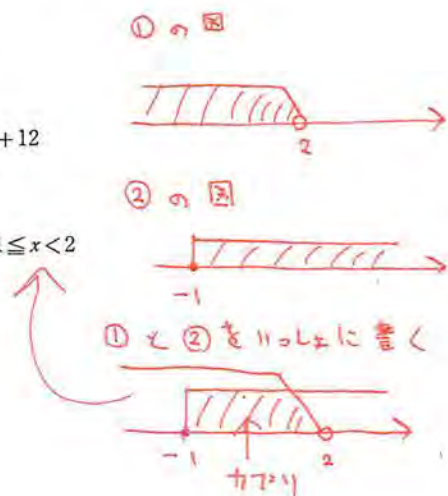 ①の図
2
+12
②の図
≦x<2
-1
①と②をいっしょに書く
-1
2
カブり